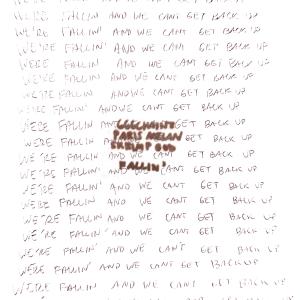 WE'RE FALLIN AND WE CANT GET BACK UP
WE'RE FALLIN' AND WE CANT GET BACK UP
WE'RE FALLIN' AND WE CAN GET BACK UP
WERE FALLIN' AND WE CANT GET BACK UP
WE'RE FALLIN AND WE CANT GET BACK UP
WE'RE FALLIN' AND WE CANT GET BACK UP
WE'RE FALLIN' AND WE CANT GET BACK UP
WERE FALLIN AND WE CANT GET BACK UP
WERE FALLIN' AND WE CANT GET BACK UP
WE'RE FALLIN AND WE CANT GET BACK UP
PARIS
FALLIN
WE'RE FALLIN' AND WE CANT GET BACK UP
WERE FALLIN AND WE CANT GET BACK UP
WE'RE FALLIN' AND WE CANT GET BACK UP
WE'RE FALLIN' AND WE CANT GET BACK UP
WE'RE FALLIN' AND WE CAN'T GET BACK UP
WERE FALLIN' AND WE CANT GET BACK UP
WE'RE FALLIN AND WE CANT GET BACK UP